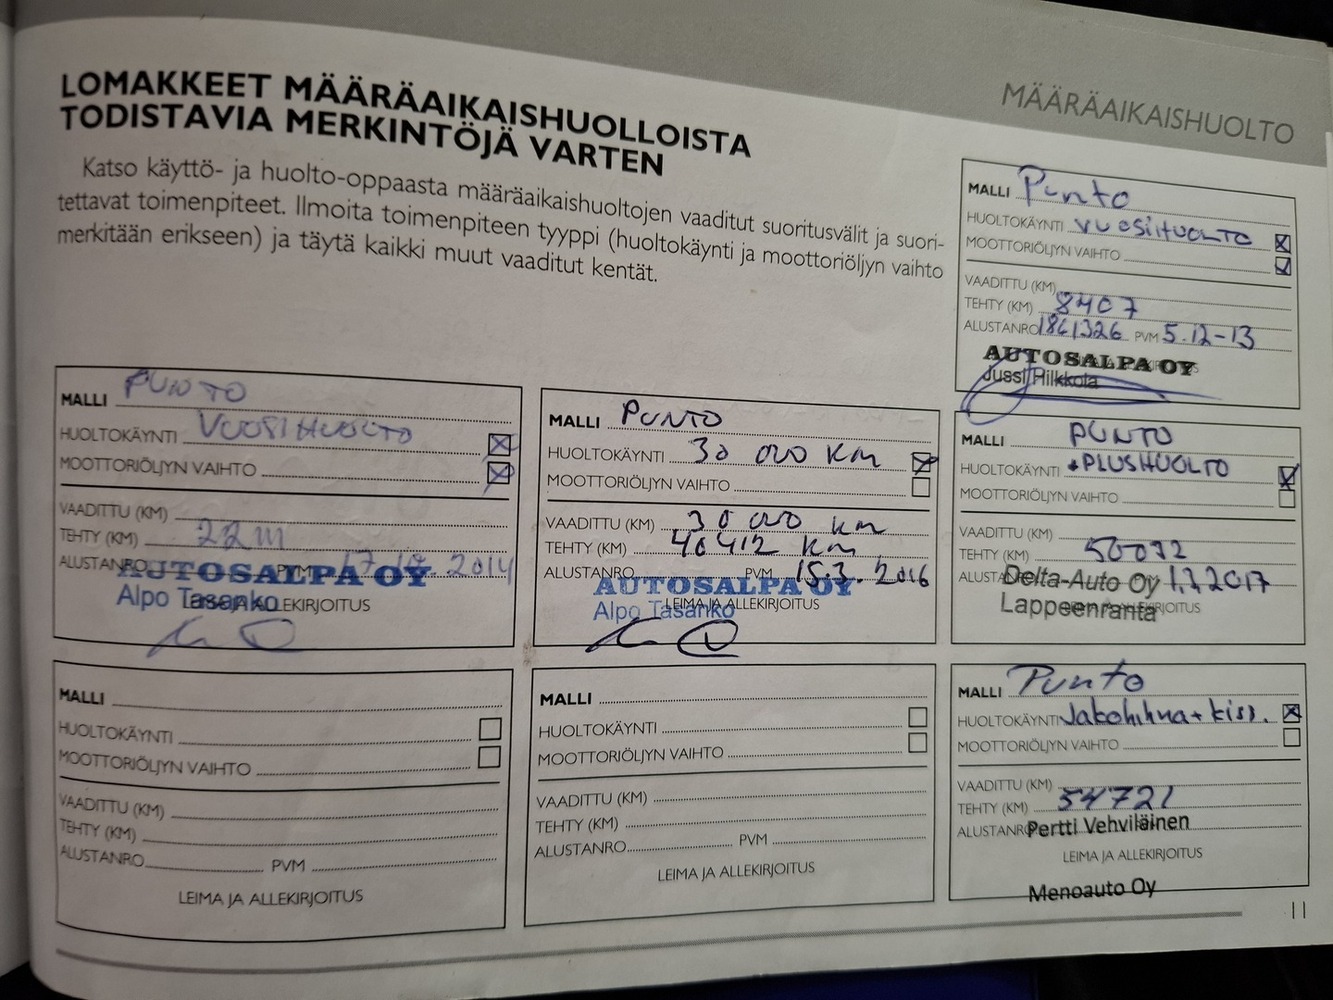 MÄÄRÄAIKAISHUOLTO
LOMAKKEET MÄÄRÄAIKAISHUOLLOISTA
TODISTAVIA MERKINTÖJÄ VARTEN
Katso käyttö- ja huolto-oppaasta määräaikaishuoltojen vaaditut suoritusvälit ja suori-
tettavat toimenpiteet. Ilmoita toimenpiteen tyyppi (huoltokäynti ja moottoriöljyn vaihto
merkitään erikseen) ja täytä kaikki muut vaaditut kentät.
MALLI Punto
HUOLTOKÄYNTI VUOSIHUOLTO
MOOTTORIÖLJYN VAIHTO
VAADITTU (KM)
TEHTY (KM) 8407
ALUSTANRO 1861326 PVM 5.12-13
AUTOSALPA OY
Jussi Hilkkola
MALLI PUNTO
HUOLTOKÄYNTI VUOSIHUOLTO
MOOTTORIÖLJYN VAIHTO
VAADITTU (KM)
TEHTY (KM)
ALUSTANRO PVM 2014
AUTOSALPA OY
Alpo Tasanko
LEIMA JA ALLEKIRJOITUS
MALLI PUNTO
HUOLTOKÄYNTI 30 000 km
MOOTTORIÖLJYN VAIHTO
VAADITTU (KM) 30 000 km
TEHTY (KM) 40412 km
ALUSTANRO PVM 15.3.2016
AUTOSALPA OY
Alpo Tasanko
LEIMA JA ALLEKIRJOITUS
MALLI PUNTO
HUOLTOKÄYNTI +PLUSHUOLTO
MOOTTORIÖLJYN VAIHTO
VAADITTU (KM)
TEHTY (KM) 50092
Delta-Auto Oy 1.3.2017
Lappeenranta
MALLI
HUOLTOKÄYNTI
MOOTTORIÖLJYN VAIHTO
VAADITTU (KM)
TEHTY (KM)
ALUSTANRO PVM
LEIMA JA ALLEKIRJOITUS
MALLI
HUOLTOKÄYNTI
MOOTTORIÖLJYN VAIHTO
VAADITTU (KM)
TEHTY (KM)
ALUSTANRO PVM
LEIMA JA ALLEKIRJOITUS
MALLI Punto
HUOLTOKÄYNTI Jakohihna + kiss.
MOOTTORIÖLJYN VAIHTO
VAADITTU (KM)
TEHTY (KM) 54721
ALUSTANRO Pertti Vehviläinen
LEIMA JA ALLEKIRJOITUS
Menoauto Oy
11